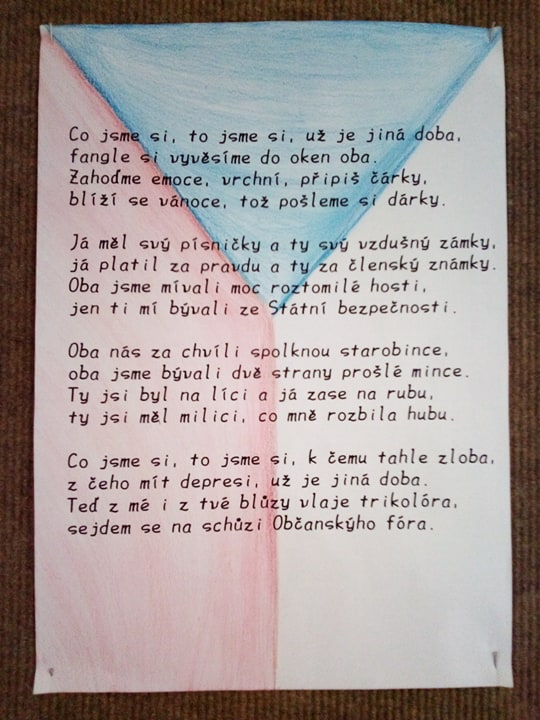 Co jsme si, to jsme si, už je jiná doba,
fangle si vyvěsíme do oken oba.
Zahoďme emoce, vrchní, připiš čárky,
blíží se vánoce, tož pošleme si dárky.
Já měl svý písničky a ty svý vzdušný zámky,
já platil za pravdu a ty za členský známky.
Oba jsme mívali moc roztomilé hosti,
jen ti mí bývali ze Státní bezpečnosti.
Oba nás za chvíli spolknou starobince,
oba jsme bývali dvě strany prošlé mince.
Ty jsi byl na líci a já zase na rubu,
ty jsi měl milici, co mně rozbila hubu.
Co jsme si, to jsme si, k čemu tahle zloba,
z čeho mít depresi, už je jiná doba.
Teď z mé i z tvé blůzy vlaje trikolóra,
sejdem se na schůzi Občanskýho fóra.